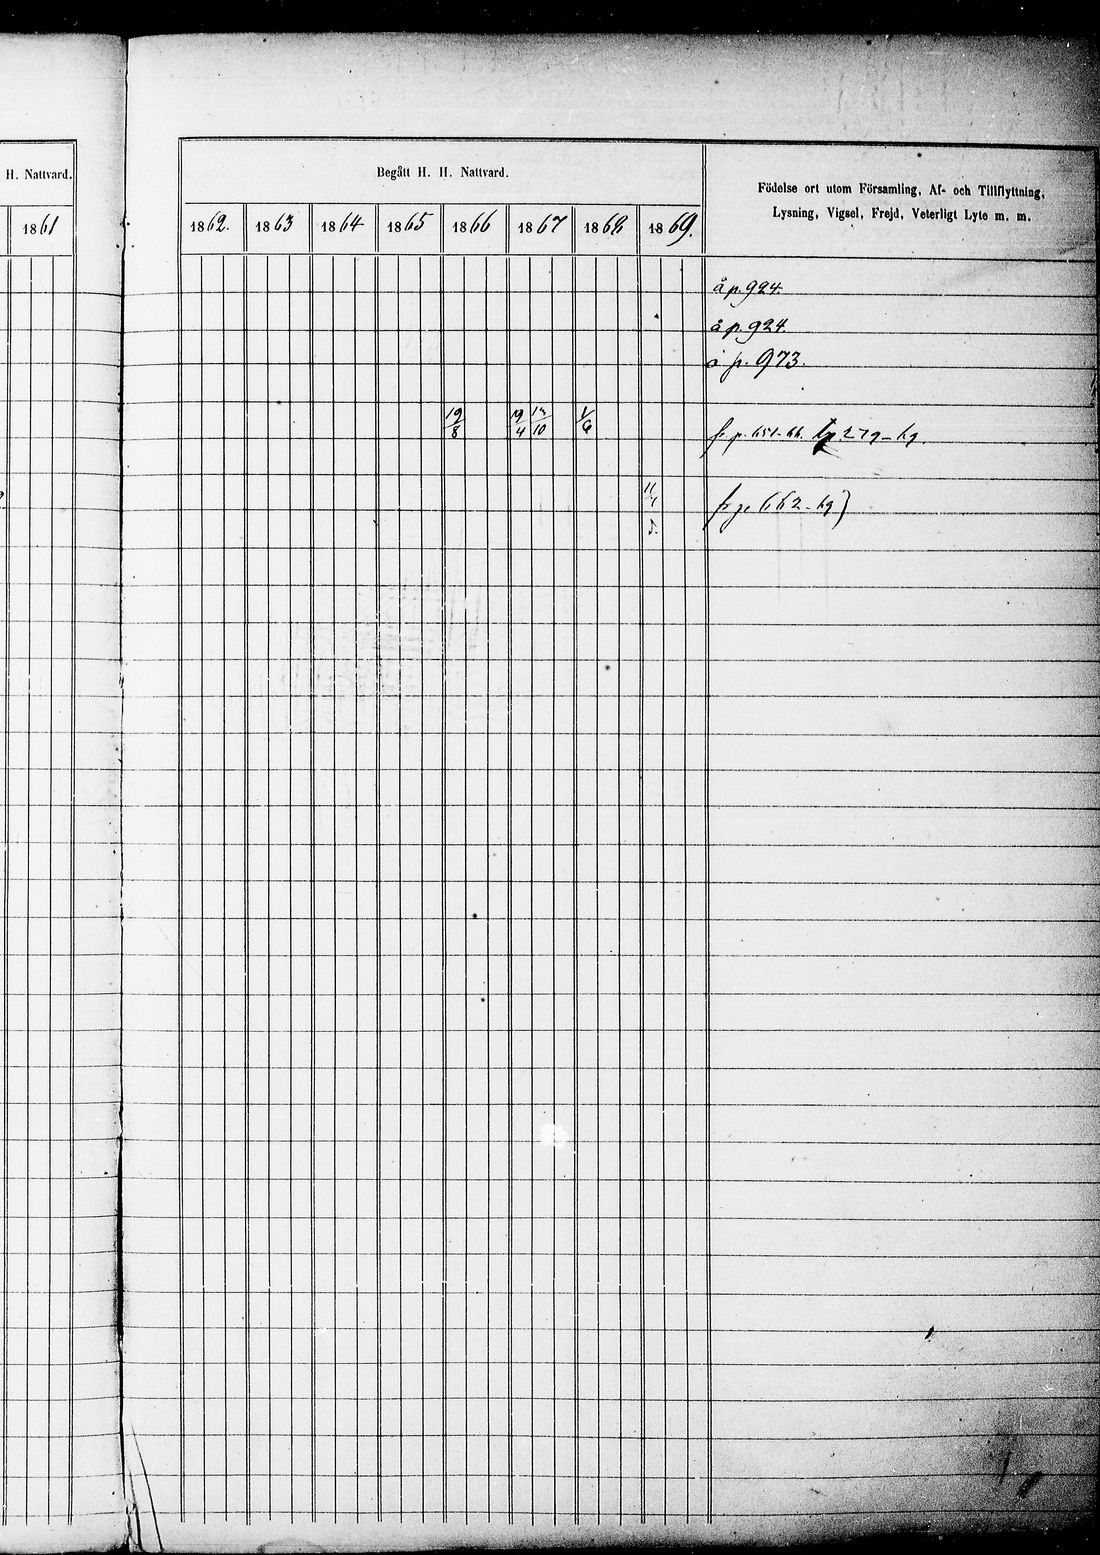 H. Nattvard.
1861
Begått H. H. Nattvard.
Födelse ort utom Församling, Af- och Tillflyttning,
Lysning, Vigsel, Frejd, Veterligt Lyte m. m.
1862. 1863 1864 1865 1866 1867 1868 1869.
å p. 924.
å p. 924.
å p. 973.
19/8 19/4 13/10 1/6 fr p. 651-66. 279-69.
fr p. 662-69